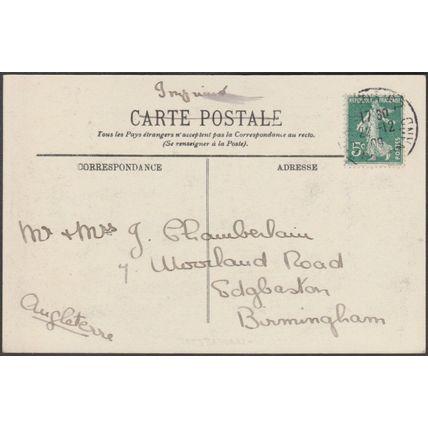 Imprimé
CARTE POSTALE
Tous les Pays étrangers n'acceptent pas la Correspondance au recto.
(Se renseigner à la Poste).
CORRESPONDANCE
ADRESSE
REPUBLIQUE FRANCAISE
5c
POSTES
Mr & Mrs J. Chamberlain
7 Moorland Road
Edgbaston
Birmingham
Angleterre